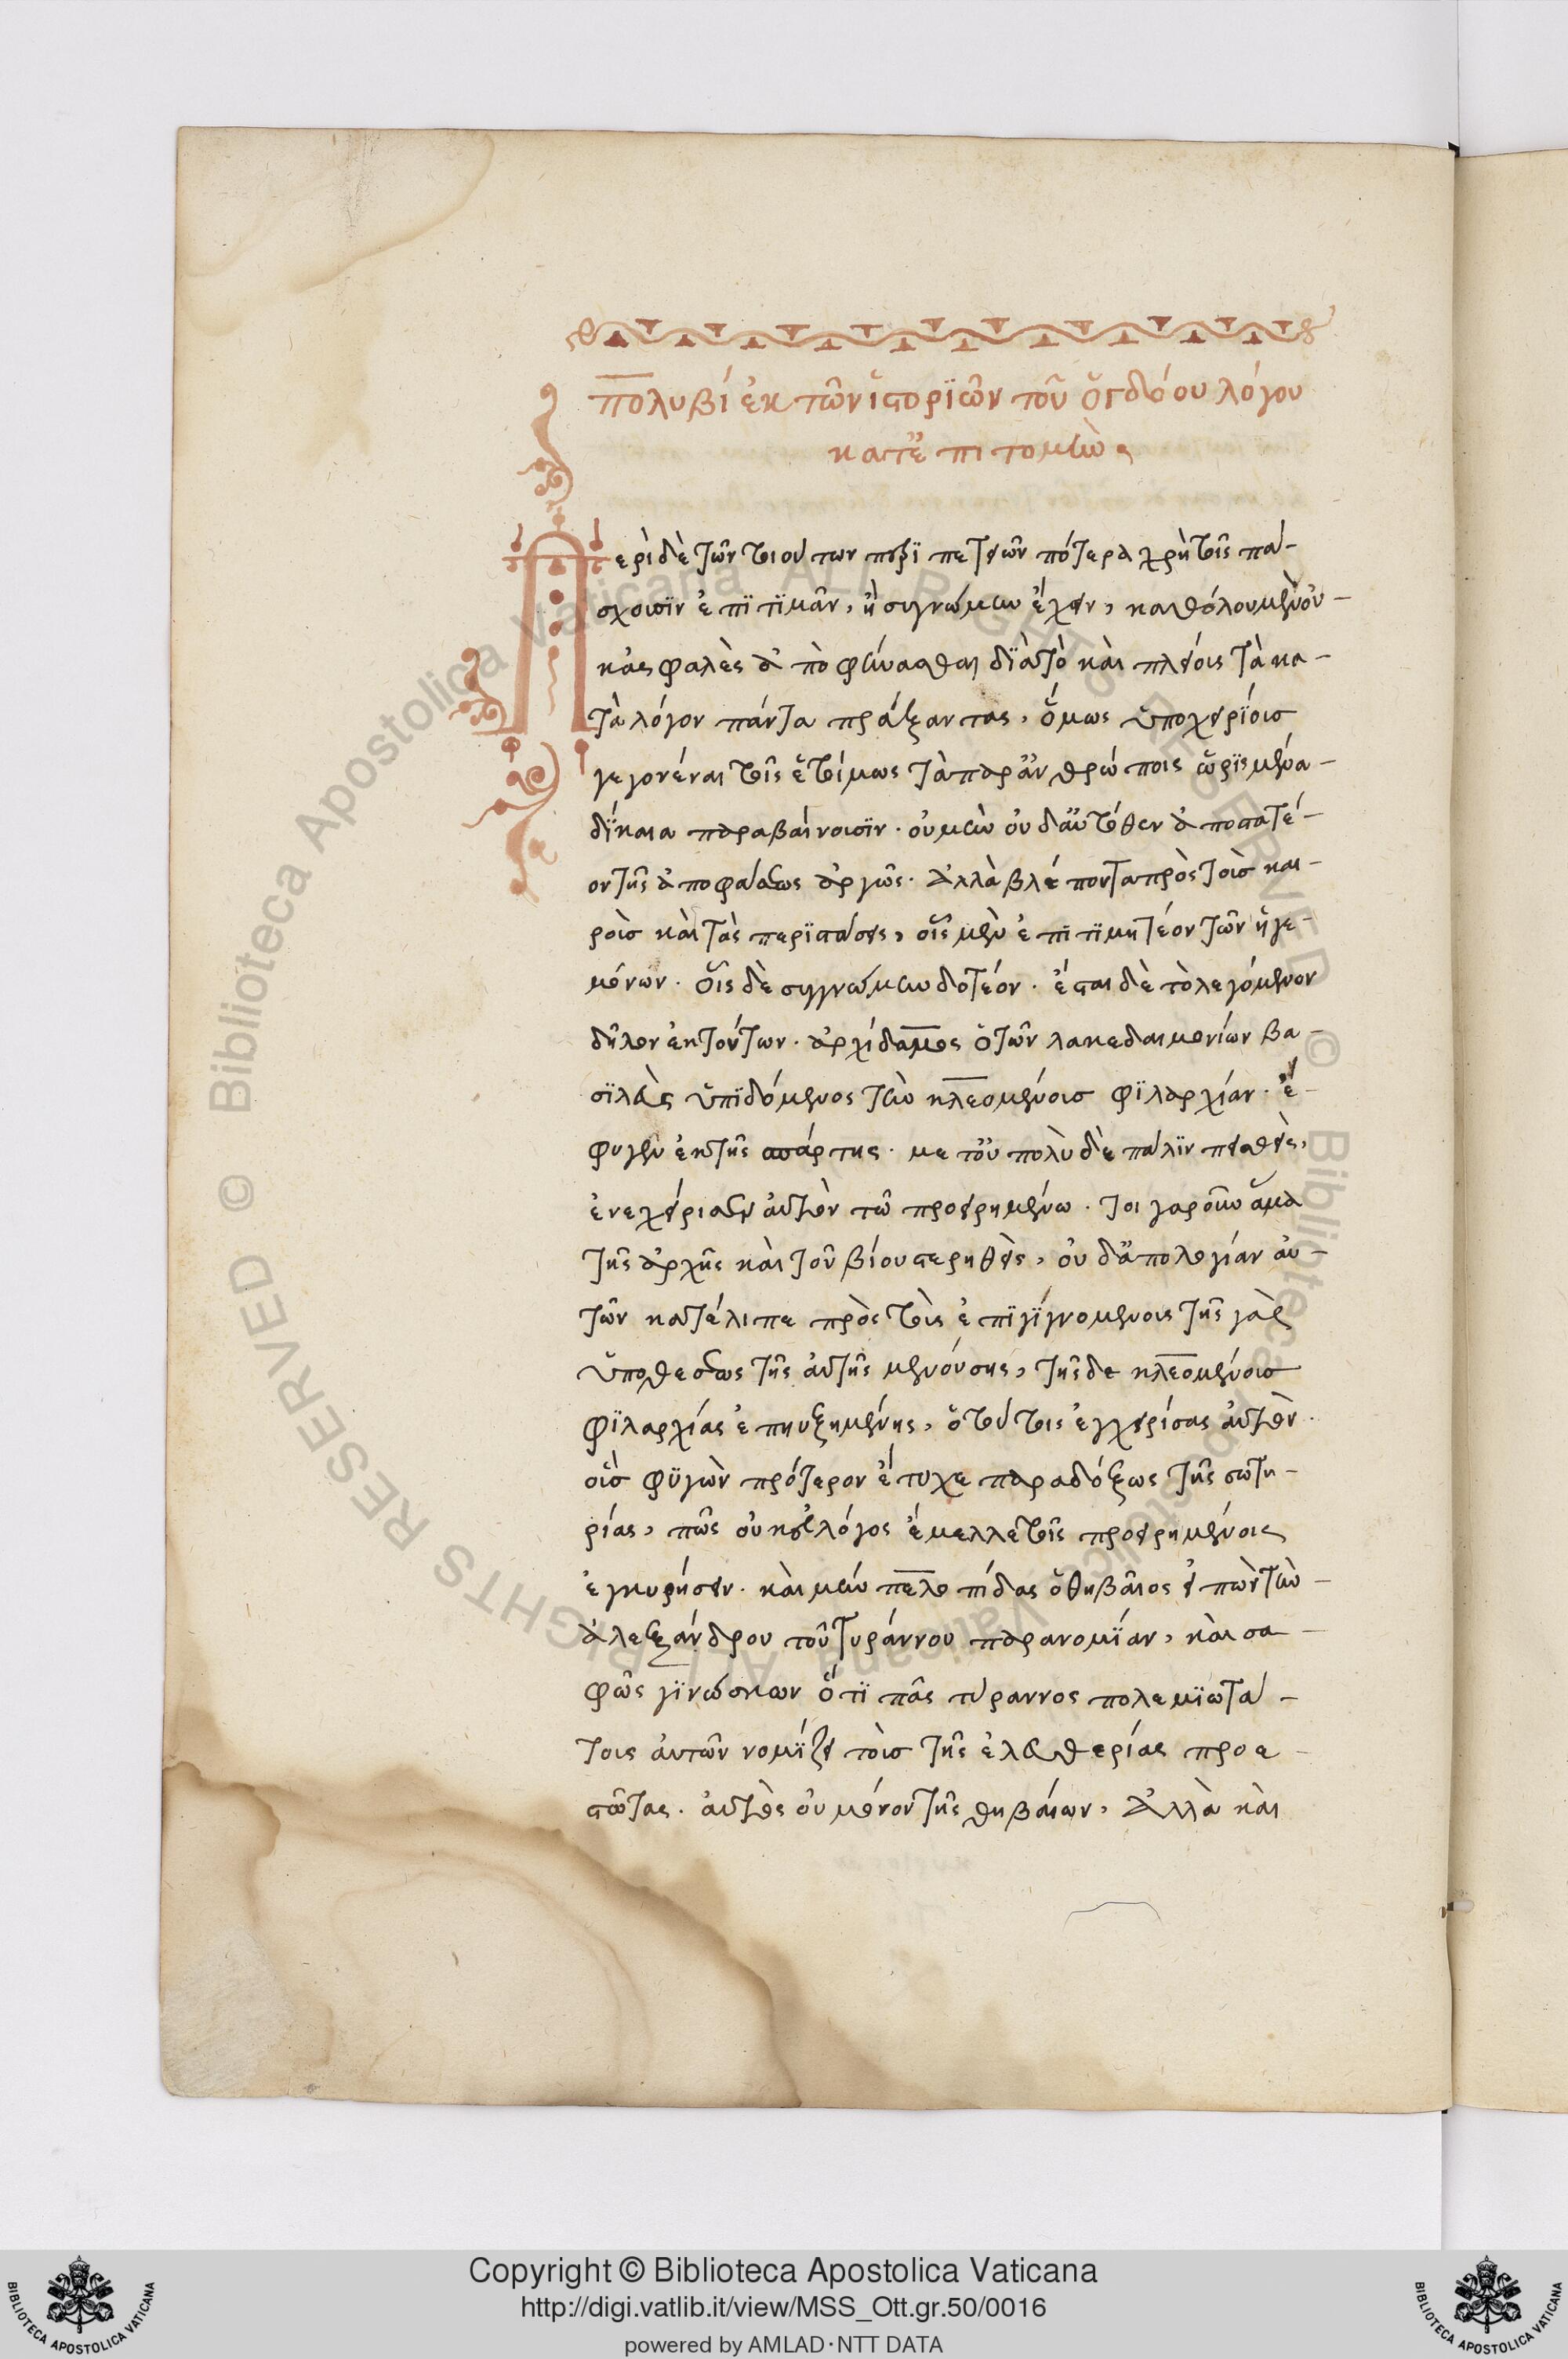 πολυβί ἐκ τῶν ἱστορϊῶν τοῦ ὀγδόου λόγου
κατ' ἐπιτομὴν
Περὶ δὲ τῶν τοιούτων περϊπετειῶν πότερα χρὴ τοῖς πά-
σχουσϊν ἐπϊτϊμᾶν, ἢ συγνώμην ἔχειν, καθόλου μὲν οὐ-
κ ἀσφαλὲς ἀποφήνασθαι δϊὰ τὸ καὶ πλείους τὰ κα-
τὰ λόγον πάντα πράξαντας, ὅμως ὑποχειρϊους
γεγονέναι τοῖς ἑτοίμως τὰ παρ' ἀνθρώποις ὡρϊσμένα
δϊκαια παραβαίνουσϊν. οὐ μὴν οὐδ' αὐτόθεν ἀποστατέ-
ον τῆς ἀποφάσεως ἀργῶς. ἀλλὰ βλέποντα πρὸς τοὺς και-
ροὺς καὶ τὰς περϊστάσεις, οἷς μὲν ἐπϊτϊμητέον τῶν ἡγε-
μόνων. οἷς δὲ συγγνώμην δοτέον. ἔσται δὲ τὸ λεγόμενον
δῆλον ἐκ τούτων. ἀρχίδαμος ὁ τῶν λακεδαιμονίων βα-
σϊλεὺς ὑπϊδόμενος τὴν κλεομένους φϊλαρχίαν. ἔ-
φυγεν ἐκ τῆς σπάρτης. μετ' οὐ πολὺ δὲ πάλϊν πεισθεὶς,
ἐνεχείρισεν αὐτὸν τῶ προειρημένω. τοιγαροῦν ἅμα
τῆς ἀρχῆς καὶ τοῦ βίου στερηθεὶς, οὐδ' ἀπολογίαν αὐ-
τῶν κατέλιπε πρὸς τοὺς ἐπϊγϊγνομένους τῆς γὰρ
ὑποθέσεως τῆς αὐτῆς μενούσης, τῆς δε κλεομένους
φϊλαρχίας ἐπηυξημένης, ὁ τούτοις ἐγχειρίσας αὐτὸν.
οὓς φϋγὼν πρότερον ἔτυχε παραδόξως τῆς σωτη-
ρίας, πῶς οὐκ εὐλόγος ἔμελλε τοῖς προειρημένοις
ἐγκυρήσειν. καὶ μὴν πελοπίδας ὁ θηβαῖος εἰπὼν τὴν
ἀλεξάνδρου τοῦ τυράννου παρανομϊαν, καὶ σα-
φῶς γϊνώσκων ὅτϊ πᾶς τύραννος πολεμϊωτά-
τους αὑτῶν νομϊζει τοὺς τῆς ἐλευθερίας προε-
στῶτας. αὐτὸς οὐ μόνον τῆς θηβαίων, ἀλλὰ καὶ
Copyright © Biblioteca Apostolica Vaticana
http://digi.vatlib.it/view/MSS_Ott.gr.50/0016
powered by AMLAD·NTT DATA